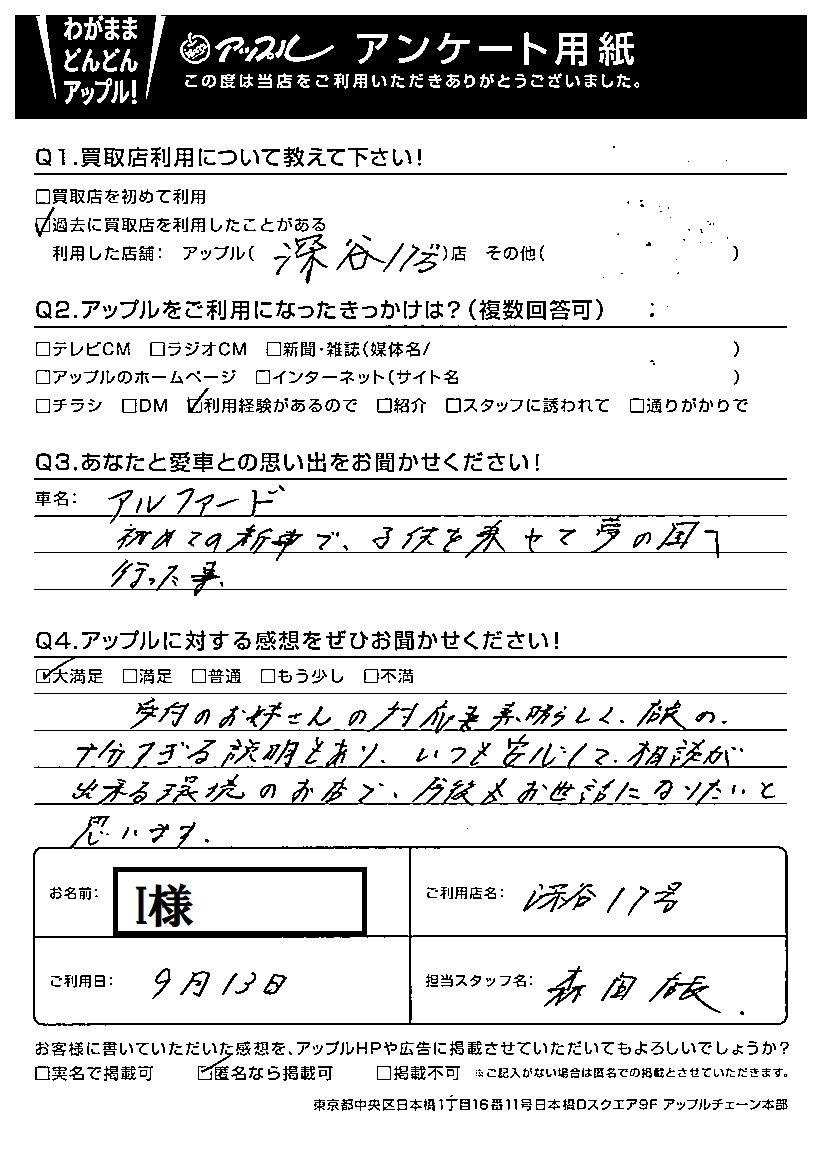 わがまま
どんどん
アップル!
アップル アンケート用紙
この度は当店をご利用いただきありがとうございました。
Q1.買取店利用について教えて下さい!
□買取店を初めて利用
☑過去に買取店を利用したことがある
利用した店舗: アップル( 深谷17号 )店 その他( )
Q2.アップルをご利用になったきっかけは?(複数回答可)
□テレビCM □ラジオCM □新聞・雑誌(媒体名/ )
□アップルのホームページ □インターネット(サイト名 )
□チラシ □DM ☑利用経験があるので □紹介 □スタッフに誘われて □通りがかりで
Q3.あなたと愛車との思い出をお聞かせください!
車名: アルファード
初めての新車で、子供を乗せて夢の国へ
行った事、
Q4.アップルに対する感想をぜひお聞かせください!
☑大満足 □満足 □普通 □もう少し □不満
受付のお姉さんの対応も素晴らしく、店長の、
十分すぎる説明もあり、いつも安心して、相談が
出来る環境のお店で、今後もお世話になりたいと
思います。
お名前: I様
ご利用店名: 深谷17号
ご利用日: 9月13日
担当スタッフ名: 森田店長
お客様に書いていただいた感想を、アップルHPや広告に掲載させていただいてもよろしいでしょうか?
□実名で掲載可 ☑匿名なら掲載可 □掲載不可 ※ご記入がない場合は匿名での掲載とさせていただきます。
東京都中央区日本橋1丁目16番11号日本橋Dスクエア9F アップルチェーン本部